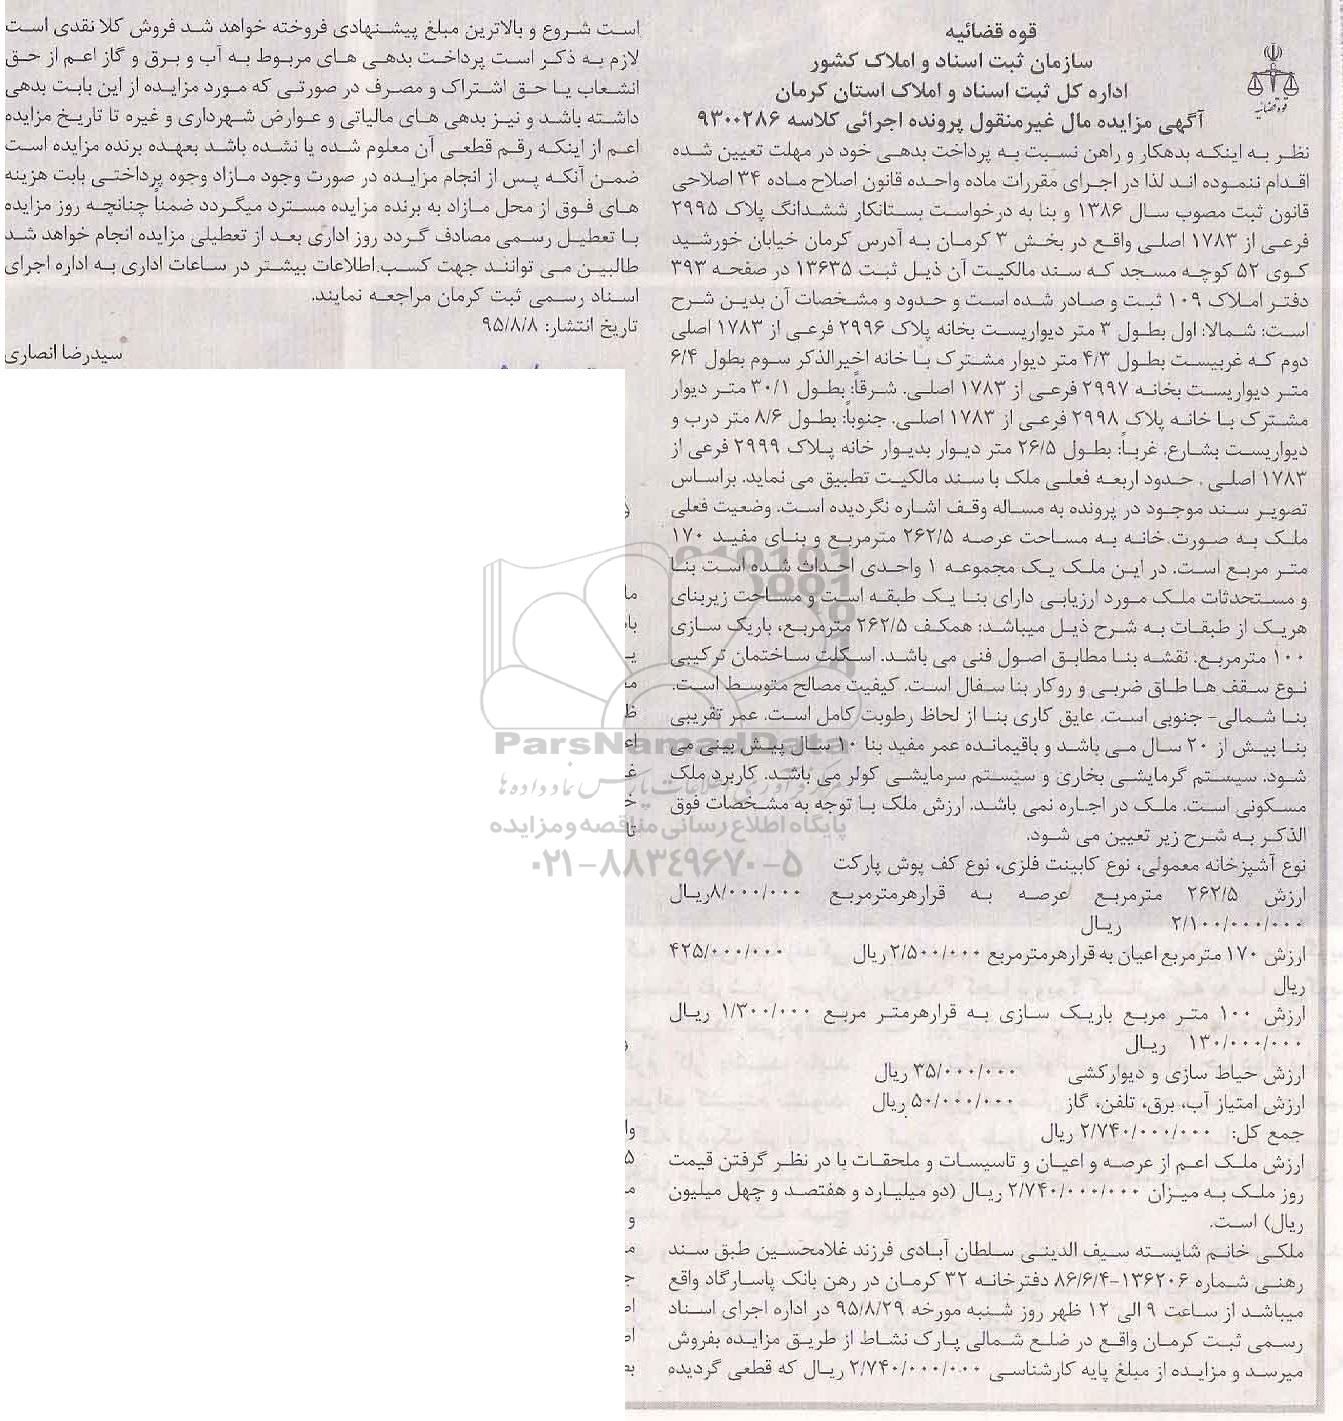 قوه قضائیه
سازمان ثبت اسناد و املاک کشور
اداره کل ثبت اسناد و املاک استان کرمان
آگهی مزایده مال غیرمنقول پرونده اجرائی کلاسه ۹۳۰۰۲۸۶
قوه قضائیه
نظر به اینکه بدهکار و راهن نسبت به پرداخت بدهی خود در مهلت تعیین شده
اقدام ننموده اند لذا در اجرای مقررات ماده واحده قانون اصلاح ماده ۳۴ اصلاحی
قانون ثبت مصوب سال ۱۳۸۶ و بنا به درخواست بستانکار ششدانگ پلاک ۲۹۹۵
فرعی از ۱۷۸۳ اصلی واقع در بخش ۳ کرمان به آدرس کرمان خیابان خورشید
کوی ۵۲ کوچه مسجد که سند مالکیت آن ذیل ثبت ۱۳۶۳۵ در صفحه ۳۹۳
دفتر املاک ۱۰۹ ثبت و صادر شده است و حدود و مشخصات آن بدین شرح
است: شمالا: اول بطول ۳ متر دیواریست بخانه پلاک ۲۹۹۶ فرعی از ۱۷۸۳ اصلی
دوم که غربیست بطول ۴/۳ متر دیوار مشترک با خانه اخیرالذکر سوم بطول ۶/۴
متر دیواریست بخانه ۲۹۹۷ فرعی از ۱۷۸۳ اصلی. شرقاً: بطول ۳۰/۱ متر دیوار
مشترک با خانه پلاک ۲۹۹۸ فرعی از ۱۷۸۳ اصلی. جنوباً: بطول ۸/۶ متر درب و
دیواریست بشارع. غرباً: بطول ۲۶/۵ متر دیوار بدیوار خانه پلاک ۲۹۹۹ فرعی از
۱۷۸۳ اصلی . حدود اربعه فعلی ملک با سند مالکیت تطبیق می نماید. براساس
تصویر سند موجود در پرونده به مساله وقف اشاره نگردیده است. وضعیت فعلی
ملک به صورت خانه به مساحت عرصه ۲۶۲/۵ مترمربع و بنای مفید ۱۷۰
متر مربع است. در این ملک یک مجموعه ۱ واحدی احداث شده است بنا
و مستحدثات ملک مورد ارزیابی دارای بنا یک طبقه است و مساحت زیربنای
هریک از طبقات به شرح ذیل میباشد: همکف ۲۶۲/۵ مترمربع، باریک سازی
۱۰۰ مترمربع. نقشه بنا مطابق اصول فنی می باشد. اسکلت ساختمان ترکیبی
نوع سقف ها طاق ضربی و روکار بنا سفال است. کیفیت مصالح متوسط است.
بنا شمالی- جنوبی است. عایق کاری بنا از لحاظ رطوبت کامل است. عمر تقریبی
بنا بیش از ۲۰ سال می باشد و باقیمانده عمر مفید بنا ۱۰ سال پیش بینی می
شود. سیستم گرمایشی بخاری و سیستم سرمایشی کولر می باشد. کاربرد ملک
مسکونی است. ملک در اجاره نمی باشد. ارزش ملک با توجه به مشخصات فوق
الذکر به شرح زیر تعیین می شود.
نوع آشپزخانه معمولی، نوع کابینت فلزی، نوع کف پوش پارکت
ارزش ۲۶۲/۵ مترمربع عرصه به قرارهرمترمربع ۸/۰۰۰/۰۰۰ریال
۲/۱۰۰/۰۰۰/۰۰۰ ریال
ارزش ۱۷۰ مترمربع اعیان به قرارهرمترمربع ۲/۵۰۰/۰۰۰ ریال ۴۲۵/۰۰۰/۰۰۰
ریال
ارزش ۱۰۰ متر مربع باریک سازی به قرارهرمتر مربع ۱/۳۰۰/۰۰۰ ریال
۱۳۰/۰۰۰/۰۰۰ ریال
ارزش حیاط سازی و دیوارکشی ۳۵/۰۰۰/۰۰۰ ریال
ارزش امتیاز آب، برق، تلفن، گاز ۵۰/۰۰۰/۰۰۰ ریال
جمع کل: ۲/۷۴۰/۰۰۰/۰۰۰ ریال
ارزش ملک اعم از عرصه و اعیان و تاسیسات و ملحقات با در نظر گرفتن قیمت
روز ملک به میزان ۲/۷۴۰/۰۰۰/۰۰۰ ریال (دو میلیارد و هفتصد و چهل میلیون
ریال) است.
ملکی خانم شایسته سیف الدینی سلطان آبادی فرزند غلامحسین طبق سند
رهنی شماره ۱۳۶۲۰۶-۸۶/۶/۴ دفترخانه ۳۲ کرمان در رهن بانک پاسارگاد واقع
میباشد از ساعت ۹ الی ۱۲ ظهر روز شنبه مورخه ۹۵/۸/۲۹ در اداره اجرای اسناد
رسمی ثبت کرمان واقع در ضلع شمالی پارک نشاط از طریق مزایده بفروش
میرسد و مزایده از مبلغ پایه کارشناسی ۲/۷۴۰/۰۰۰/۰۰۰ ریال که قطعی گردیده
است شروع و بالاترین مبلغ پیشنهادی فروخته خواهد شد فروش کلا نقدی است
لازم به ذکر است پرداخت بدهی های مربوط به آب و برق و گاز اعم از حق
انشعاب یا حق اشتراک و مصرف در صورتی که مورد مزایده از این بابت بدهی
داشته باشد و نیز بدهی های مالیاتی و عوارض شهرداری و غیره تا تاریخ مزایده
اعم از اینکه رقم قطعی آن معلوم شده یا نشده باشد بعهده برنده مزایده است
ضمن آنکه پس از انجام مزایده در صورت وجود مازاد وجوه پرداختی بابت هزینه
های فوق از محل مازاد به برنده مزایده مسترد میگردد ضمنا چنانچه روز مزایده
با تعطیل رسمی مصادف گردد روز اداری بعد از تعطیلی مزایده انجام خواهد شد
طالبین می توانند جهت کسب اطلاعات بیشتر در ساعات اداری به اداره اجرای
اسناد رسمی ثبت کرمان مراجعه نمایند.
تاریخ انتشار: ۹۵/۸/۸
سیدرضا انصاری
ParsNamadData
مرکز فرآوری اطلاعات پارس نماد داده ها
پایگاه اطلاع رسانی مناقصه و مزایده
۰۲۱-۸۸۳۴۹۶۷۰-۵